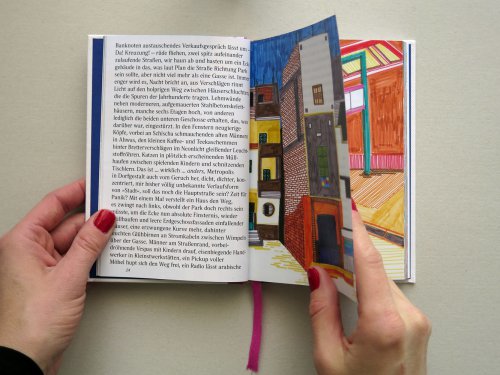 Banknoten austauschendes Verkaufsgespräch lässt um
Da! Kreuzung! – rüde fliehen, zwei spitz aufeinander
zulaufende Straßen, wir haun ab und hasten um ein
gebäude in das, was laut Plan die Straße Richtung Park
sein sollte, aber nicht viel mehr als eine Gasse ist. Immer
enger wird es, Nacht bricht an, aus Verschlägen rinnt
Licht auf den holprigen Weg zwischen Häuserschluchten
die die Spuren der Jahrhunderte tragen. Lehmwände
neben moderneren, aufgemauerten Stahlbetonskelett-
häusern, manche sechs Etagen hoch, von anderen
lediglich die beiden unteren Geschosse erhalten, das, was
darüber war, eingestürzt. In den Fenstern neugierige
Köpfe, vorbei an Schischa schmauchenden alten Männern
in Ahwas, den kleinen Kaffee- und Teekaschemmen
hinter Bretterverschlägen im Neonlicht gleißender Leucht-
stoffröhren. Katzen in plötzlich erscheinenden Müll-
haufen zwischen spielenden Kindern und schnitzenden
Tischlern. Das ist ... wirklich ... anders, Metropolis
in Dorfgestalt auch vom Geruch her, dicht, dichter, kon-
zentriert, mir bisher völlig unbekannte Verlaufsform
von »Stadt«, soll das noch die Hauptstraße sein? Zeit für
Panik? Mit einem Mal verstellt ein Haus den Weg,
es zwingt nach links, obwohl der Park doch rechts sein
müsste, um die Ecke nun absolute Finsternis, wieder
Müllhaufen und leere Erdgeschossfassaden einfallender
Häuser, eine erzwungene Kurve mehr, dahinter
leuchten Glühbirnen an Stromkabeln zwischen Wimpeln
über der Gasse. Männer am Straßenrand, vorbei-
dröhnende Vespas mit Kindern drauf, eisenbiegende Hand-
werker in Kleinstwerkstätten, ein Pickup voller
Möbel hupt sich den Weg frei, ein Radio lässt arabische